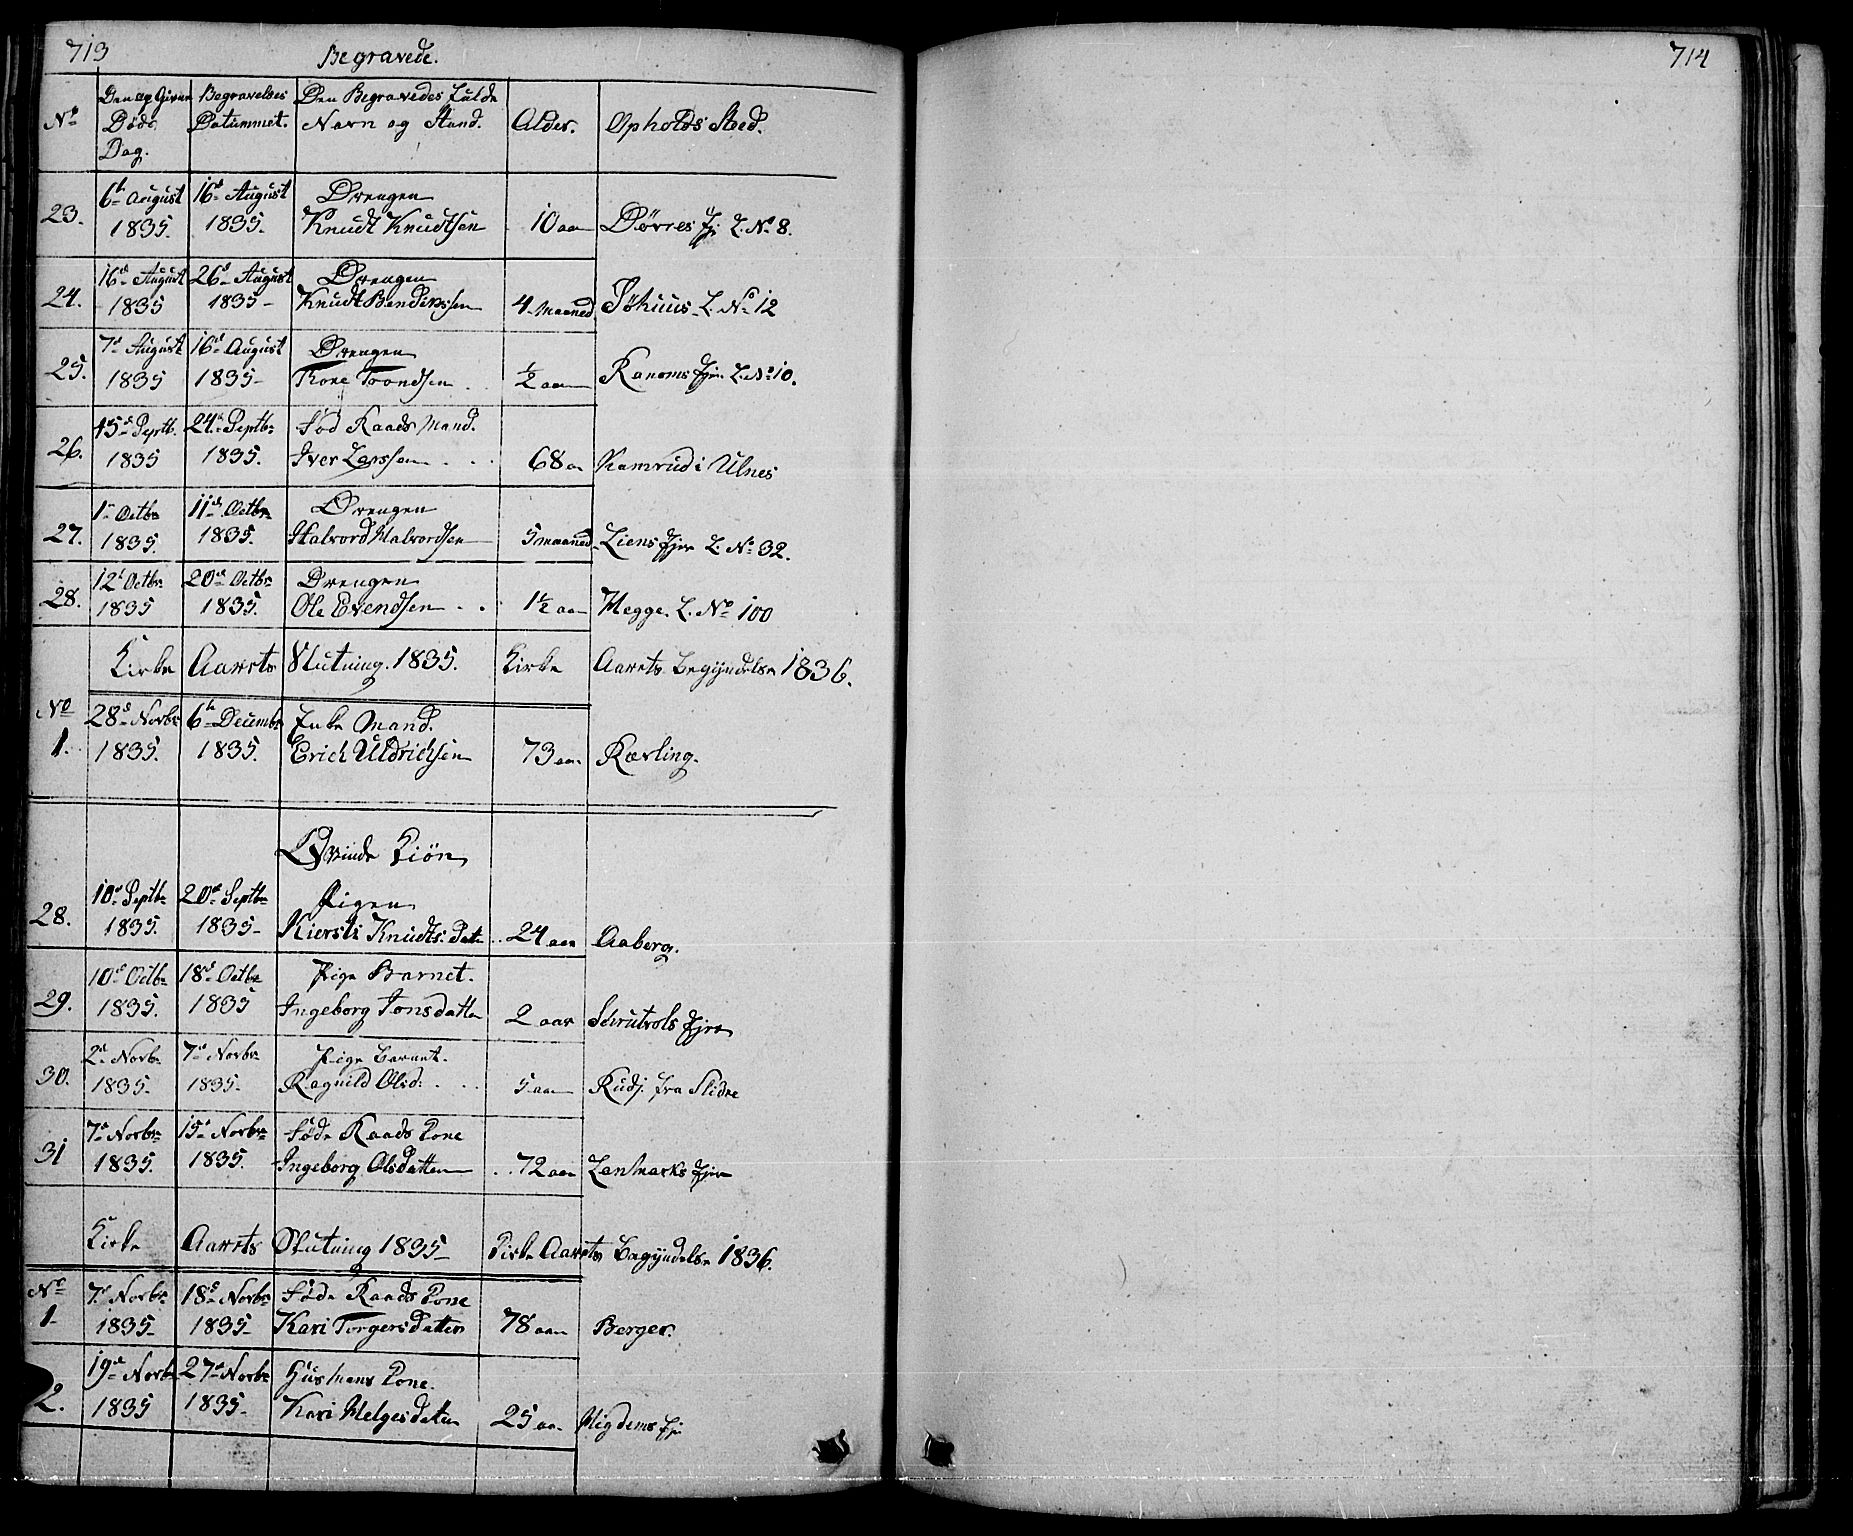 713
Begravede.
714
No
Den opgivne Døds Dag.
Begravelses Datummet.
Den Begravedes fulde Navn og Stand.
Alder.
Opholds Sted.
23. 6te August 1835. 16de August 1835. Drengen Knudt Knudtsen 10 aar
24. 16de August 1835 26de August 1835 Drengen Knudt 4 Maaned L. No 12
25. 7de August 1835 16de August 1835 Drengen Tore Trondsen 1/2 aar L. No 10.
26. 15de Septb. 1835 24de Septbr 1835. Fød Raads Mand. Iver Larssen 68 aar Kamrud i Ulnes
27. 1te Octbr 1835. 11de Octbr 1835. Drengen Halvord Halvordsen 5 maaned Liens Ejer L. No 32.
28. 12te Octbr 1835 20de Octbr 1835. Drengen Ole Evendsen 1 1/2 aar Hegge. L. No 100
Kirke Aarets Slutning. 1835. Kirke Aarets Begyndelse 1836.
No 1. 28de Novbr 1835. 6te Decembr 1835. Enke Mand. Erich Uldrichsen 73 aar Kærling.
Qvinde Kiøn
28. 10de Septbr 1835. 20de Septbr 1835 Pigen Kiersti Knudts: Datter 24 aar Aaberg.
29. 10de Octbr 1835. 18de Octbr 1835 Pige Barnet. Ingeborg Jonsdatter 2 aar Skrutvols Ejer
30. 2de Novbr 1835. 7de Novbr 1835. Pige Barnet. Ragnild Olsd: 5 aar Rudj. fra Slidre
31 7de Novbr 1835. 15de Novbr 1835. Føde Raads Kone Ingeborg Olsdatter 72 aar
Kirke Aarets Slutning 1835 Kirke Aarets Begyndelse 1836.
No 1 7de Novbr 1835 18de Novbr 1835 Føde Raads Kone Kari Torgersdatter 78 aar Berger.
2. 19de Novbr 1835 27de Novbr 1835 Husmans Kone. Kari Helgesdatter 25 aar